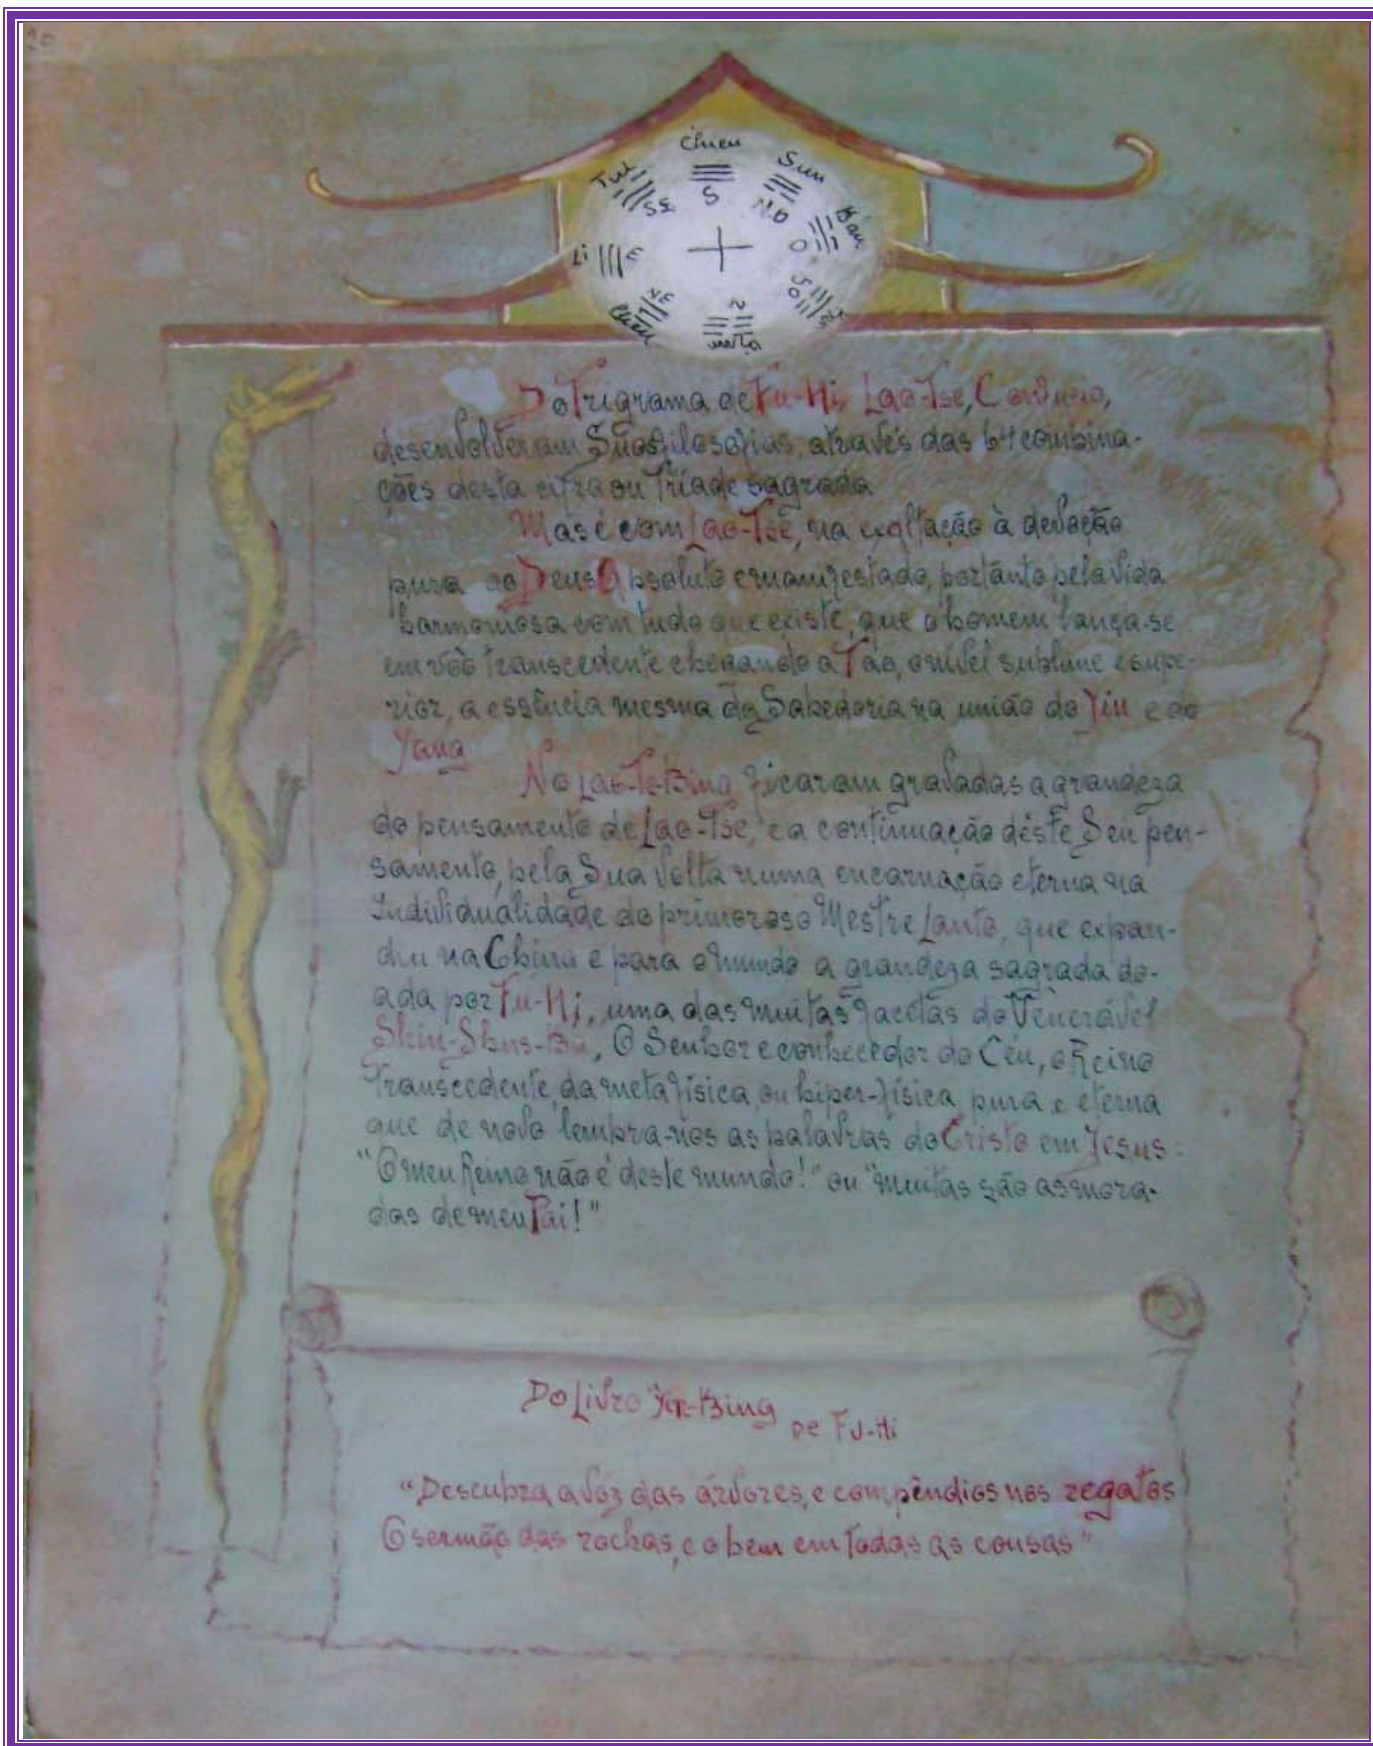 20
Chien
Sun
Tui
S
SE
N.O
Kan
O
Li
E
SO
NE
N
Do Trigrama de Fu-Hi, Lao-Tse, Confucio,
desenvolveram Suas filosofias, através das 64 combina-
ções desta cifra ou Tríade sagrada
Mas é com Lao-Tse, na exaltação à devoção
pura ao Deus Absoluto e manifestado, portanto pela vida
harmoniosa com tudo que existe, que o homem lança-se
em vôo transcedente chegando a Tao, o nível sublime e supe-
rior, a essência mesma da Sabedoria na união do Yin e do
Yang
No Lao-Te-King ficaram gravadas a grandeza
do pensamento de Lao-Tse, e a continuação déste Seu pen-
samento, pela Sua volta numa encarnação eterna na
Individualidade do primoroso Mestre Lanto, que expan-
diu na China e para o mundo a grandeza sagrada do-
ada por Fu-Hi, uma das muitas facetas do Venerável
O Senhor e conhecedor do Céu, o Reino
Transcedente, da metafísica, ou hiper-física pura e eterna
que de novo lembra-nos as palavras do Cristo em Jesus:
"O meu Reino não é deste mundo!" ou "muitas são as mora-
das de meu Pai!"
Do Livro King
DE FU-HI
"Descubra a voz das árvores, e compêndios nos regatos
O sermão das rochas, e o bem em todas as cousas"